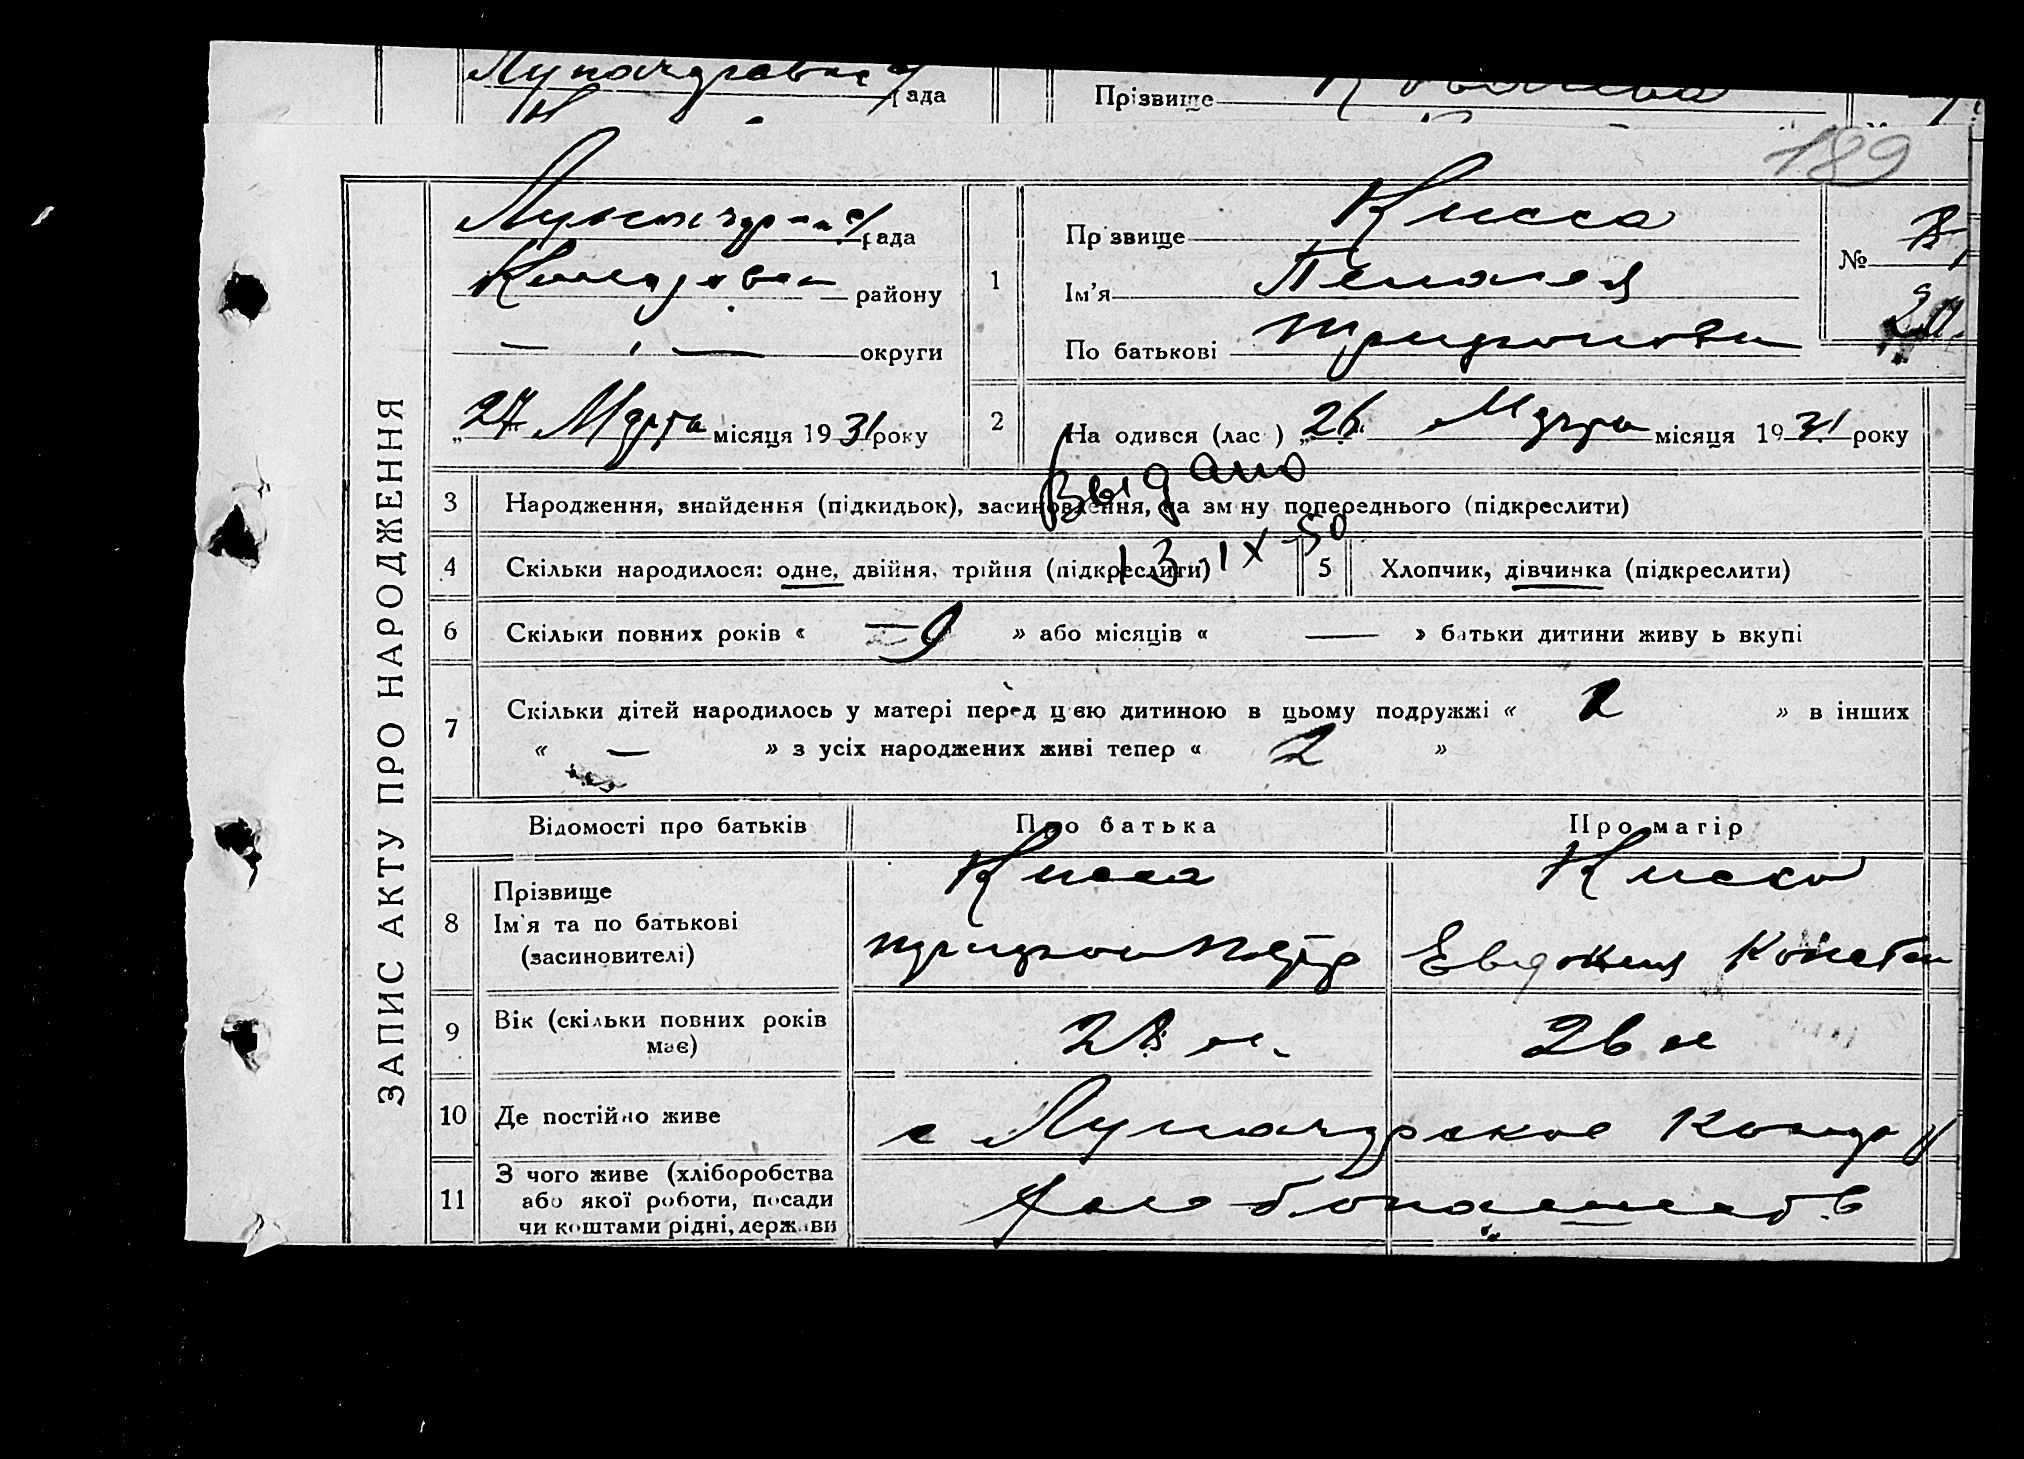 ада
Прізвище
189
ЗАПИС АКТУ ПРО НАРОДЖЕННЯ
рада
району
округи
„27“ Марта місяця 1931 року
1
Пр звище Кисса
Ім'я Пелагея
По батькові Трифонови
№
20
2
На одився (лас ) „26“ Марта місяця 1931 року
Выдано
13-IX-50
3 Народження, знайдення (підкидьок), засиновлення, на зм ну попереднього (підкреслити)
4 Скільки народилося: одне, двійня, трійня (підкреслити)
5 Хлопчик, дівчинка (підкреслити)
6 Скільки повних років « 9 » або місяців « — » батьки дитини живу ь вкупі
7 Скільки дітей народилось у матері перед цією дитиною в цьому подружжі « 2 » в інших
« — » з усіх народжених живі тепер « 2 »
Відомості про батьків
Про батька
Про матір
8 Прізвище
Ім'я та по батькові
(засиновителі)
Кисса
Трифон Петр
Кисса
Евдокия Констан
9 Вік (скільки повних років
має)
28 л.
26 л
10 Де постійно живе
с Луначарское
11 З чого живе (хліборобства
або якої роботи, посади
чи коштами рідні, держави